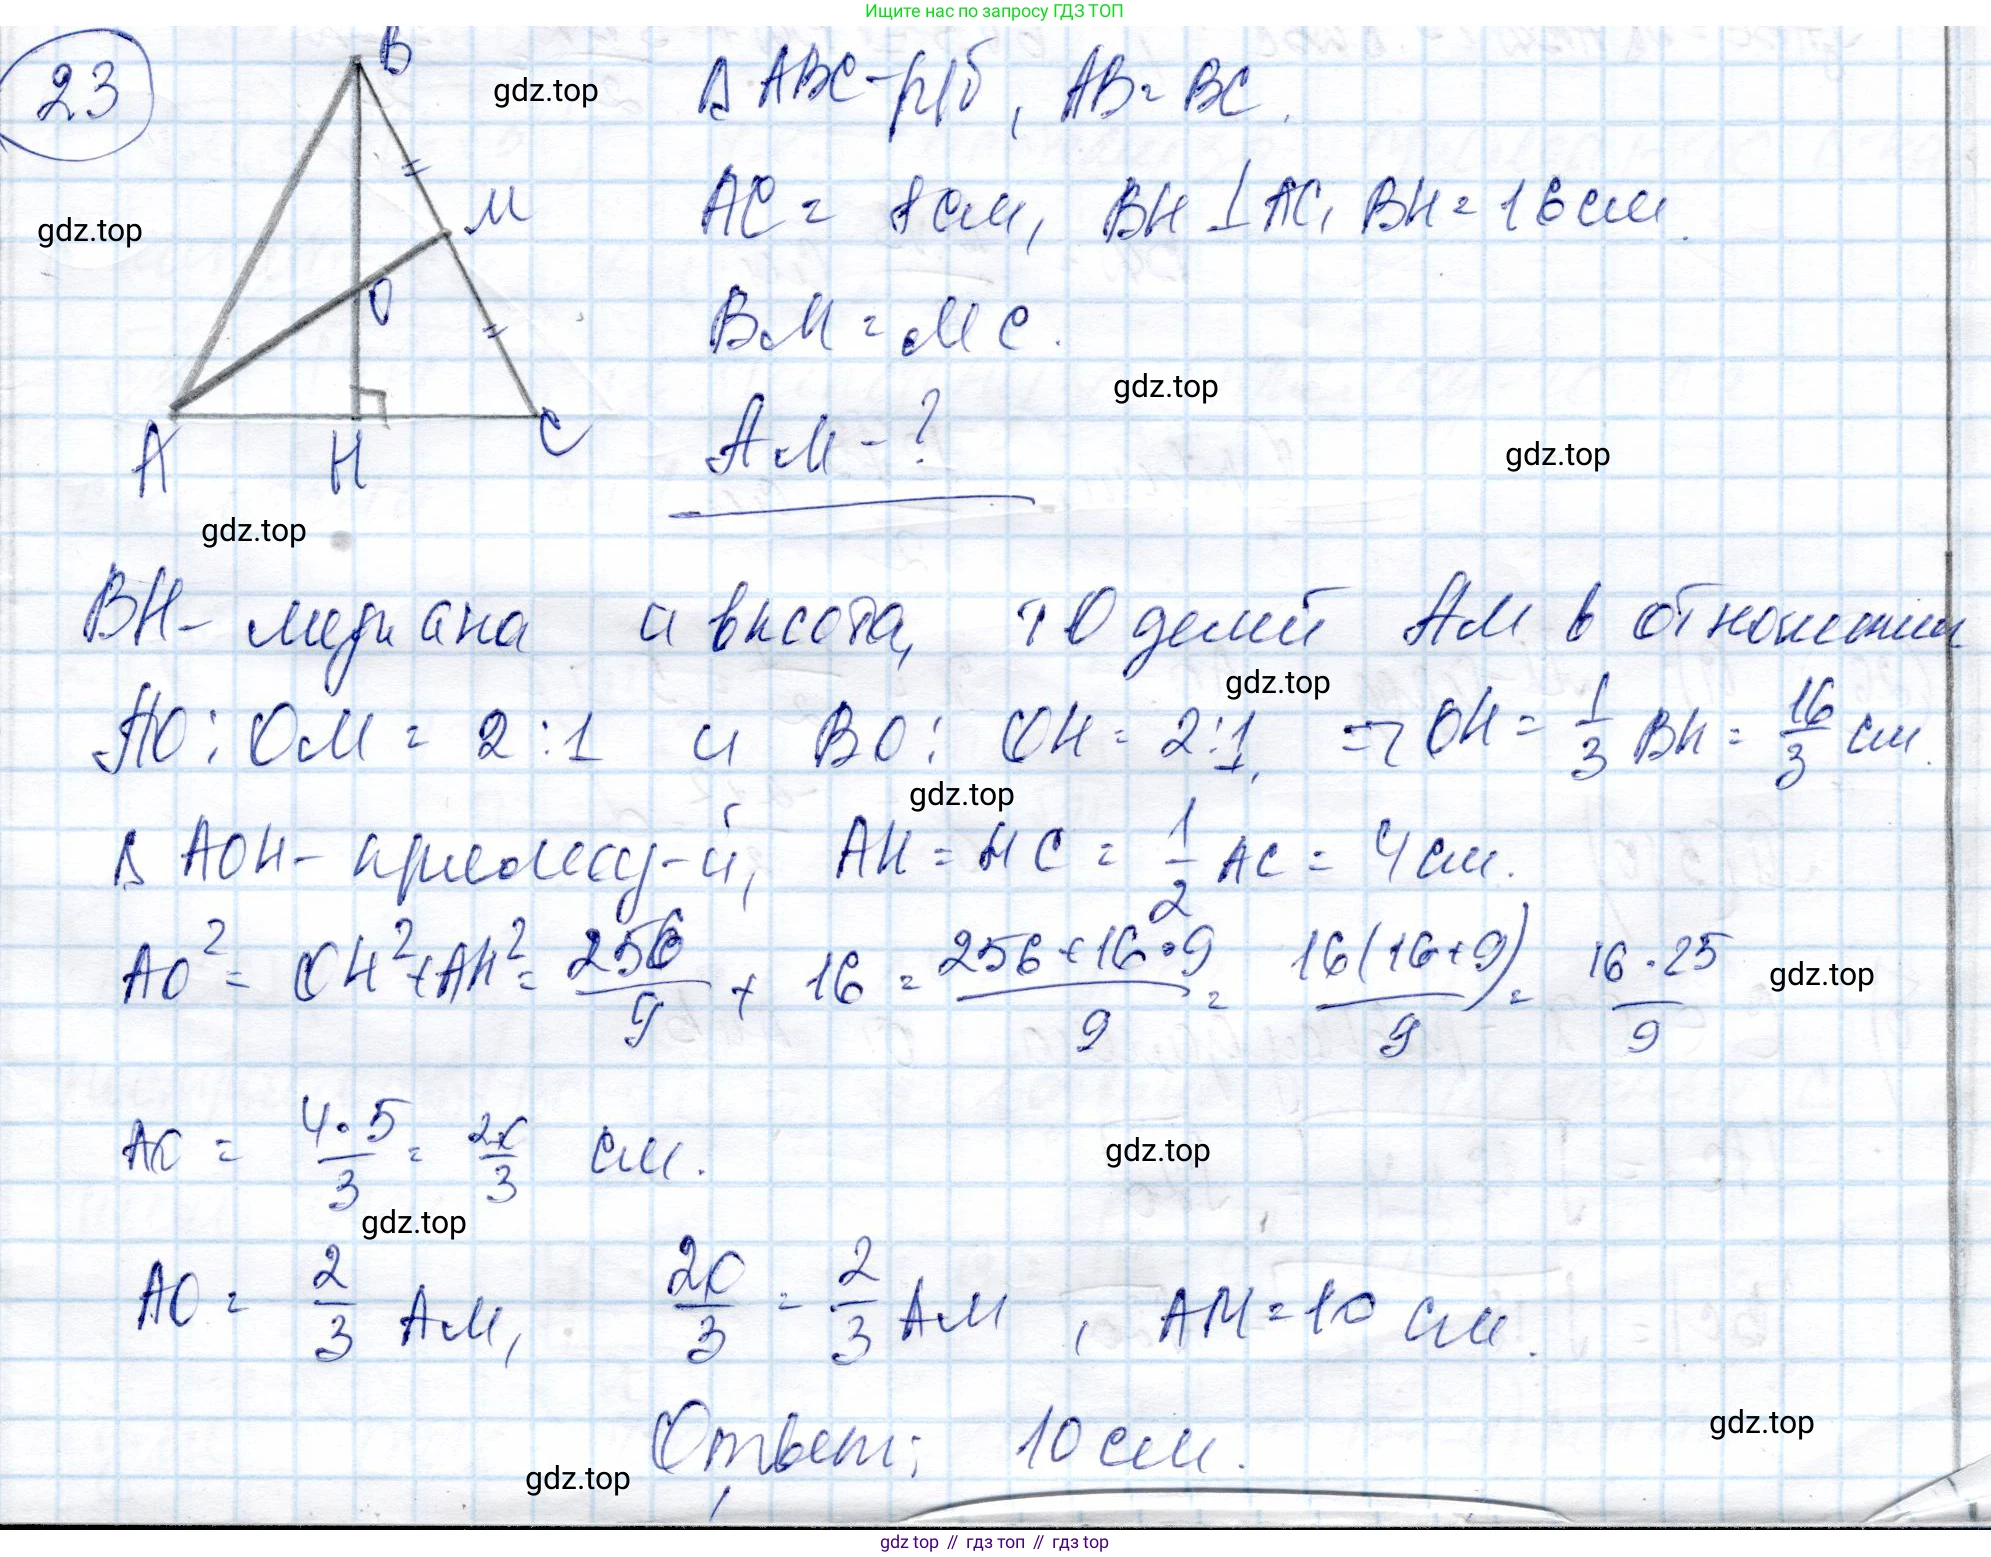 Ищите нас по запросу ГДЗ ТОП
23
B
gdz.top
Δ ABC - р/б, AB = BC.
M
gdz.top
AC = 8 см, BH ⊥ AC, BH = 16 см.
O
BM = MC.
gdz.top
A H C
AM - ?
gdz.top
gdz.top
BH - медиана и высота, т O делит AM в отношении
gdz.top
AO : OM = 2 : 1 и BO : OH = 2 : 1, => OH = 1/3 BH = 16/3 см.
gdz.top
Δ AOH - прямоуг-й, AH = HC = 1/2 AC = 4 см.
AO² = OH² + AH² = 256/9 + 16 = (256 + 16 · 9)/9 = 16(16+9)/9 = 16 · 25/9
gdz.top
AO = 4 · 5/3 = 20/3 см.
gdz.top
gdz.top
AO = 2/3 AM, 20/3 = 2/3 AM, AM = 10 см.
gdz.top
Ответ: 10 см.
gdz.top
gdz top // гдз топ // гдз top